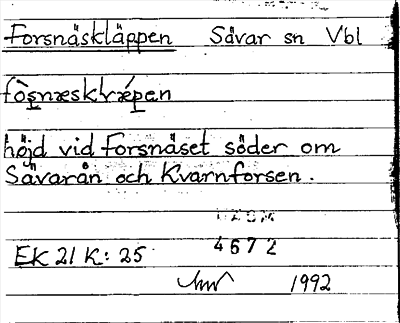 Forsnäskläppen Sävar sn Vbl
fòs̲næsklǽp̲en
höjd vid Forsnäset söder om
Sävarån och Kvarnforsen.
4672
EK 21 K: 25
1992